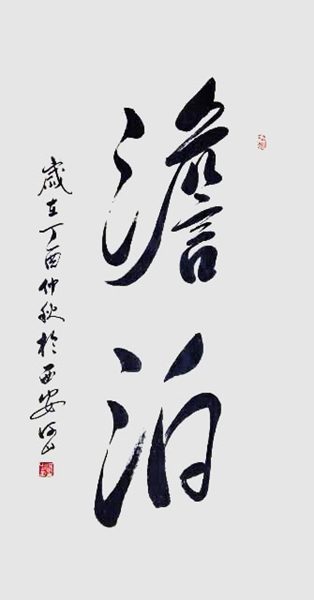 澹泊
歲在丁酉仲秋於西安